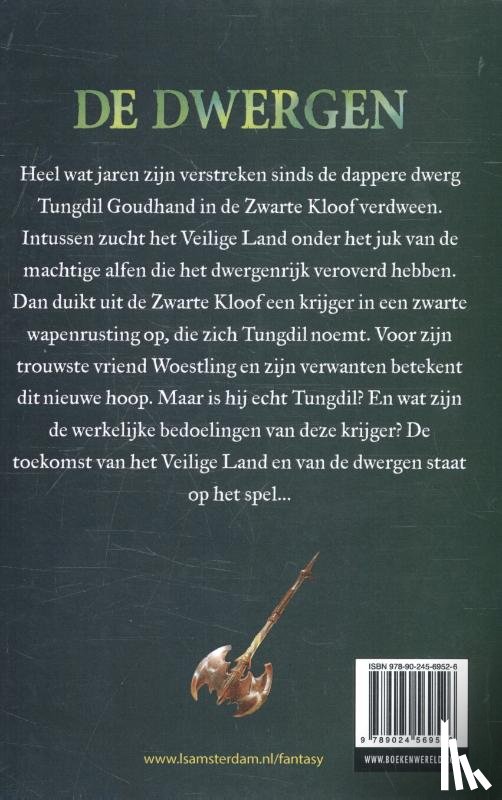 DE DWERGEN
Heel wat jaren zijn verstreken sinds de dappere dwerg
Tungdil Goudhand in de Zwarte Kloof verdween.
Intussen zucht het Veilige Land onder het juk van de
machtige alfen die het dwergenrijk veroverd hebben.
Dan duikt uit de Zwarte Kloof een krijger in een zwarte
wapenrusting op, die zich Tungdil noemt. Voor zijn
trouwste vriend Woestling en zijn verwanten betekent
dit nieuwe hoop. Maar is hij echt Tungdil? En wat zijn
de werkelijke bedoelingen van deze krijger? De
toekomst van het Veilige Land en van de dwergen staat
op het spel...
ISBN 978-90-245-6952-6
9 789024 5695
www.lsamsterdam.nl/fantasy